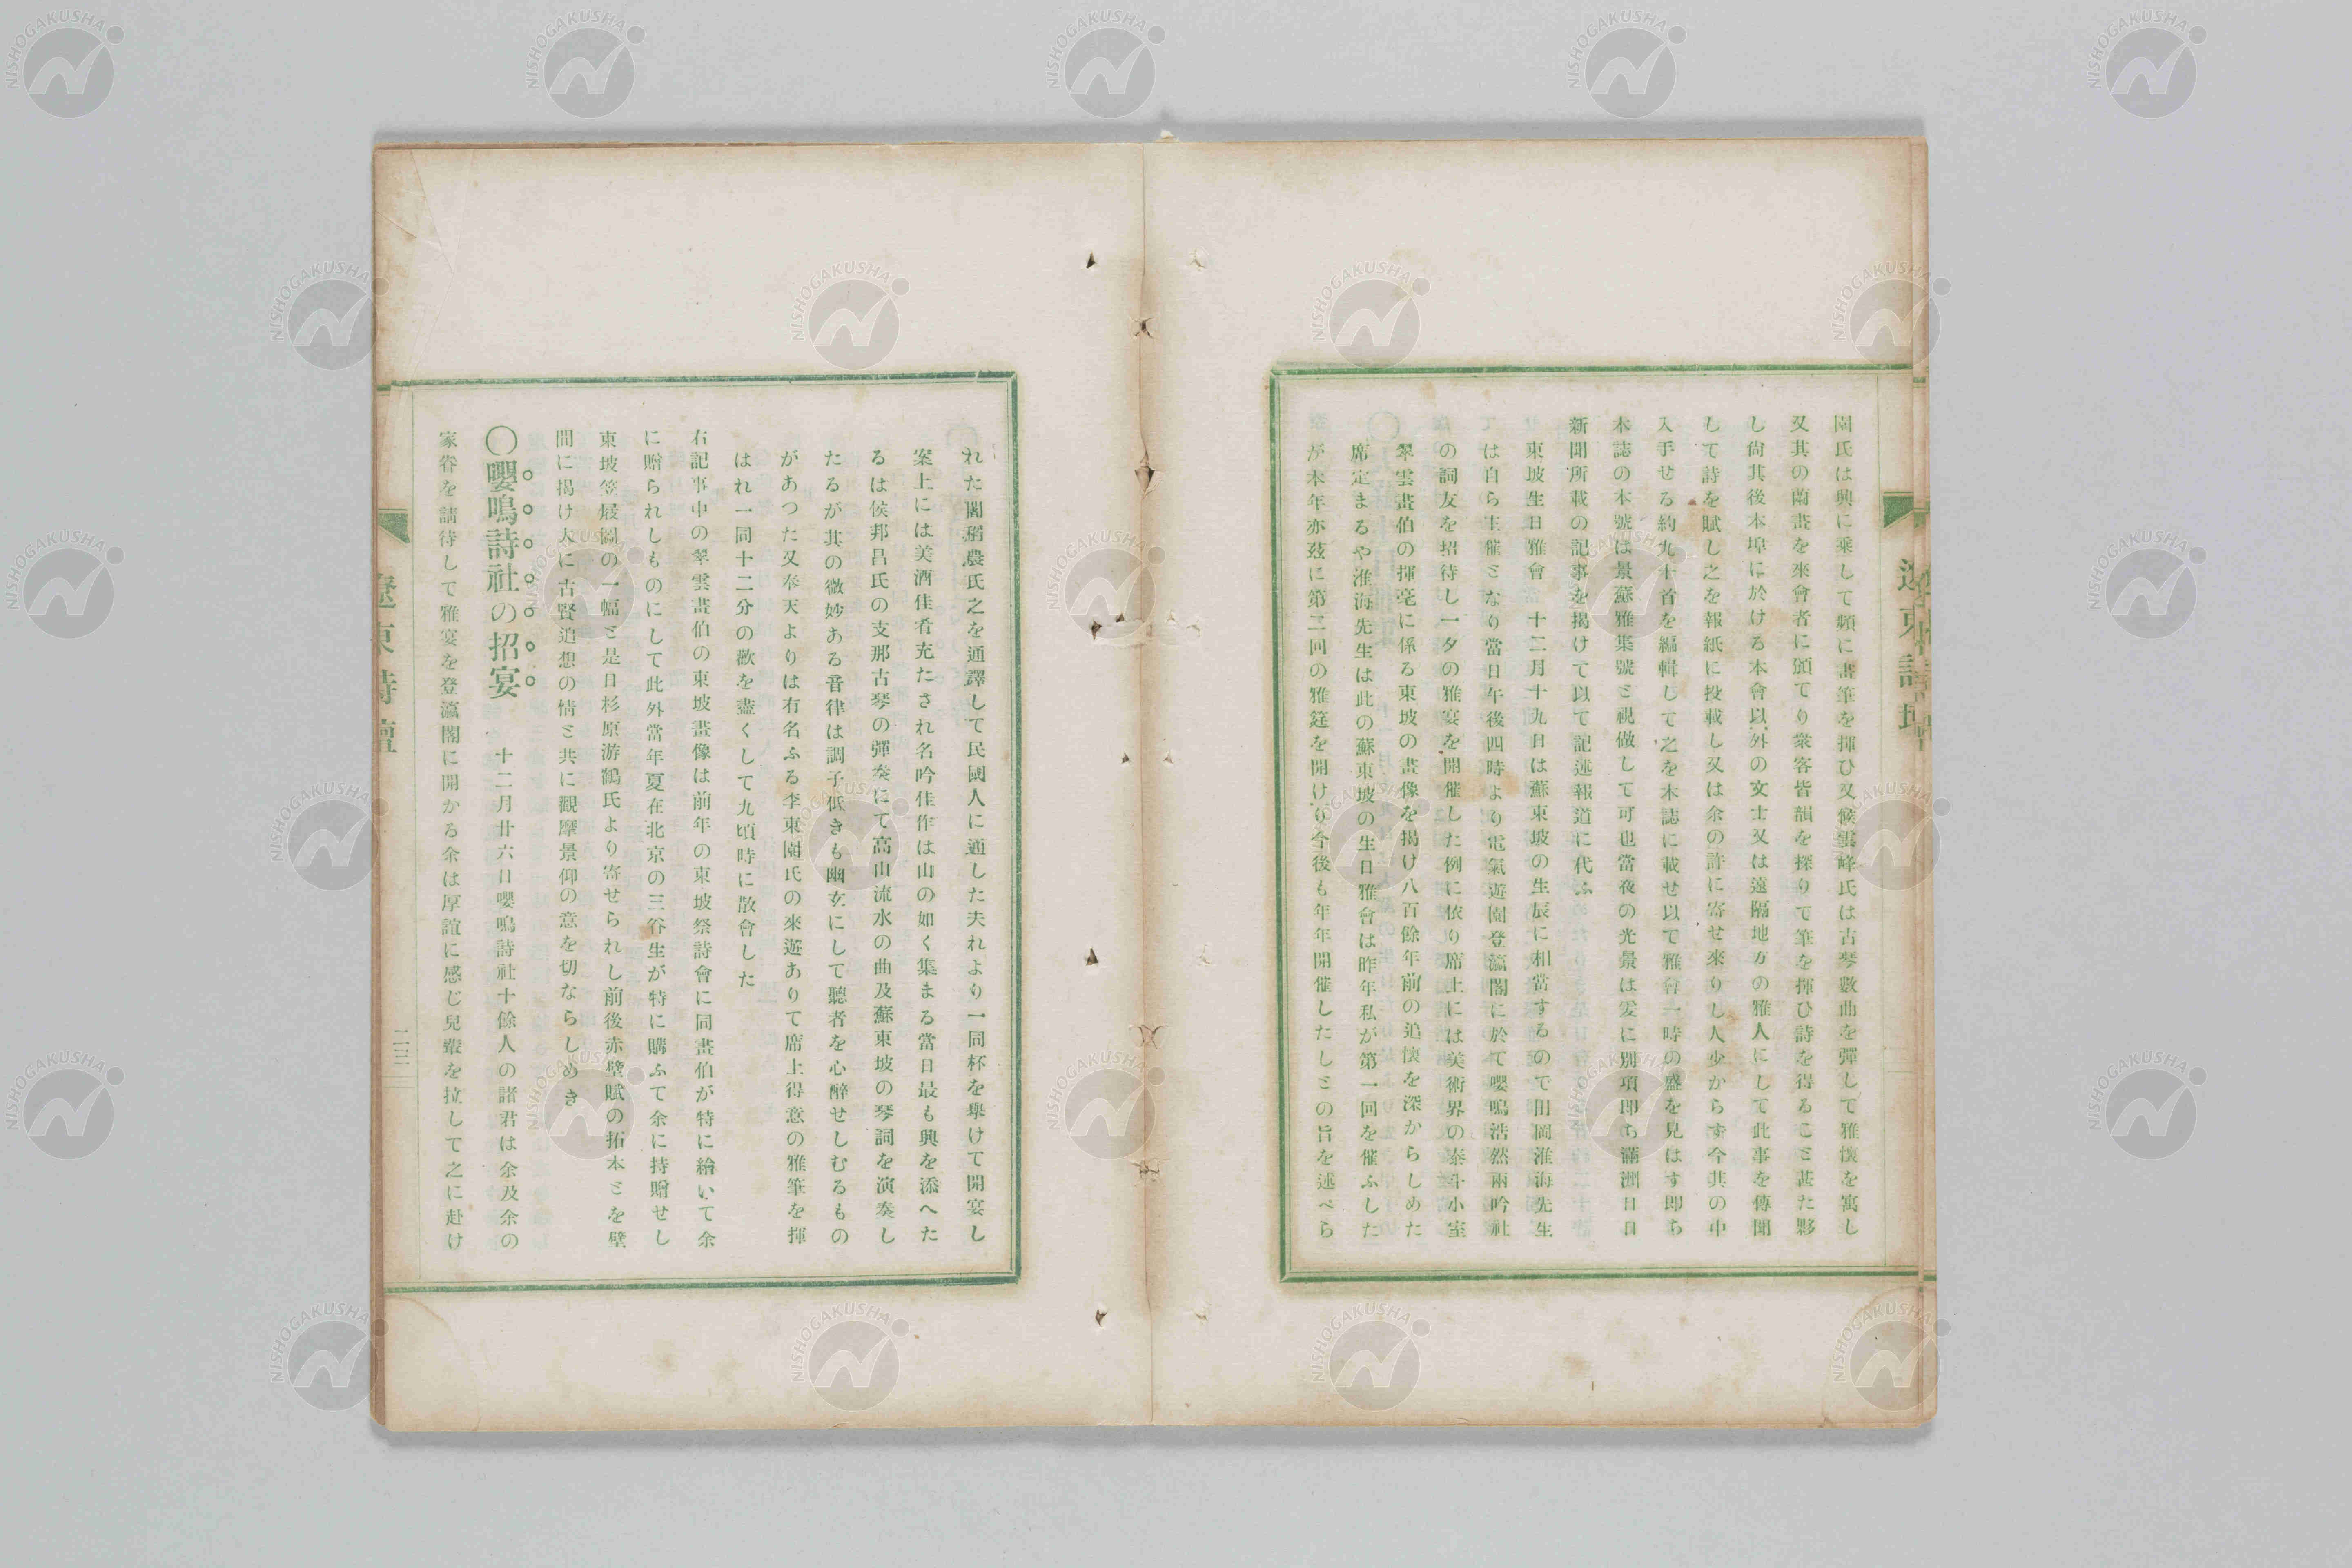 園氏は興に乘して頻に畫筆を揮ひ又候雲峰氏は古琴數曲を彈して雅懷を寓し
又其の蘭畫を來會者に頒てり衆客皆韻を探りて筆を揮ひ詩を得るこミ甚た夥
し尙其後本埠に於ける本會以外の文士又は遠隔地方の雅人にして此事を傳聞
して詩を賦し之を報紙に投載し又は余の許に寄せ來りし人少からす今其の中
入手せる約九十首を編輯して之を本誌に載せ以て雅會一時の盛を見はす卽ち
本誌の本號は景蘇雅集號ミ視做して可也當夜の光景は爰に別項卽ち滿洲日日
新聞所載の記事を揭けて以て記述報道に代ふ
東坡生日雅會 十二月十九日は蘇東坡の生辰に相當するので田岡淮海先生
は自ら主催ミなり當日午後四時より電氣遊園登瀛閣に於て嚶鳴浩然兩吟社
の詞友を招待し一夕の雅宴を開催した例に依り席上には美術界の泰斗小室
翠雲畫伯の揮毫に係る東坡の畫像を揭け八百餘年前の追懷を深からしめた
席定まるや淮海先生は此の蘇東坡の生日雅會は昨年私が第一回を催ふした
が本年亦玆に第二回の雅筵を開けり今後も年年開催したしミの旨を述べら
遼東詩壇
れた閻𫀻農氏之を通譯して民國人に通した夫れより一同杯を擧けて開宴し
案上には美酒佳肴充たされ名吟佳作は山の如く集まる當日最も興を添へた
るは侯邦昌氏の支那古琴の彈奏にて高山流水の曲及蘇東坡の琴詞を演奏し
たるが其の微妙ある音律は調子低きも幽玄にして聽者を心醉せしむるもの
があつた又奉天よりは有名ふる李東園氏の來遊ありて席上得意の雅筆を揮
はれ一同十二分の歡を盡くして九頃時に散會した
右記事中の翠雲畫伯の東坡畫像は前年の東坡祭詩會に同畫伯が特に繪いて余
に贈られしものにして此外當年夏在北京の三谷生が特に購ふて余に持贈せし
東坡笠屐圖の一幅ミ是日杉原游鶴氏より寄せられし前後赤壁賦の拓本ミを壁
間に揭け大に古賢追想の情ミ共に觀摩景仰の意を切ならしめき
〇嚶鳴詩社の招宴 十二月廿六日嚶鳴詩社十餘人の諸君は余及余の
家眷を請待して雅宴を登瀛閣に開かる余は厚誼に感じ兒輩を拉して之に赴け
遼東詩壇
二三